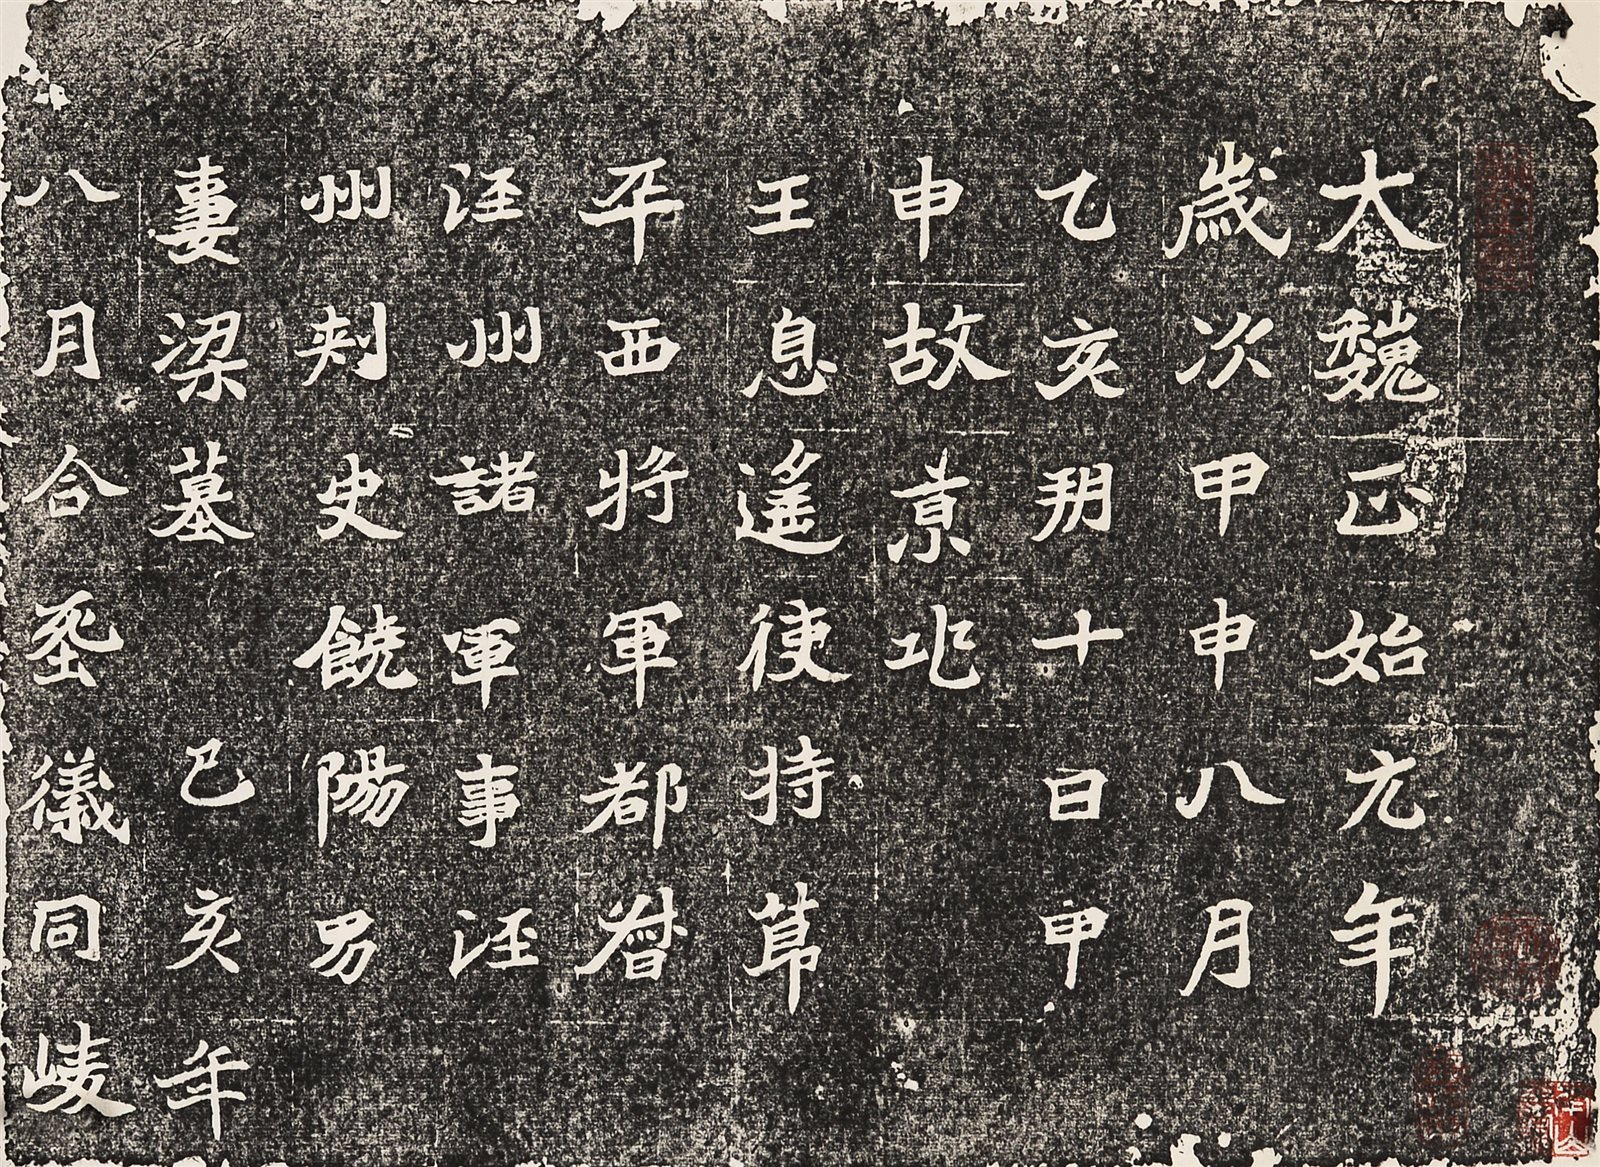 大魏正始元年
歲次甲申八月
乙亥朔十日甲
申故京兆
王息遙使持節
平西將軍都督
涇州諸軍事涇
州刺史饒陽男
妻梁墓 己亥年
八月合葬儀同崚